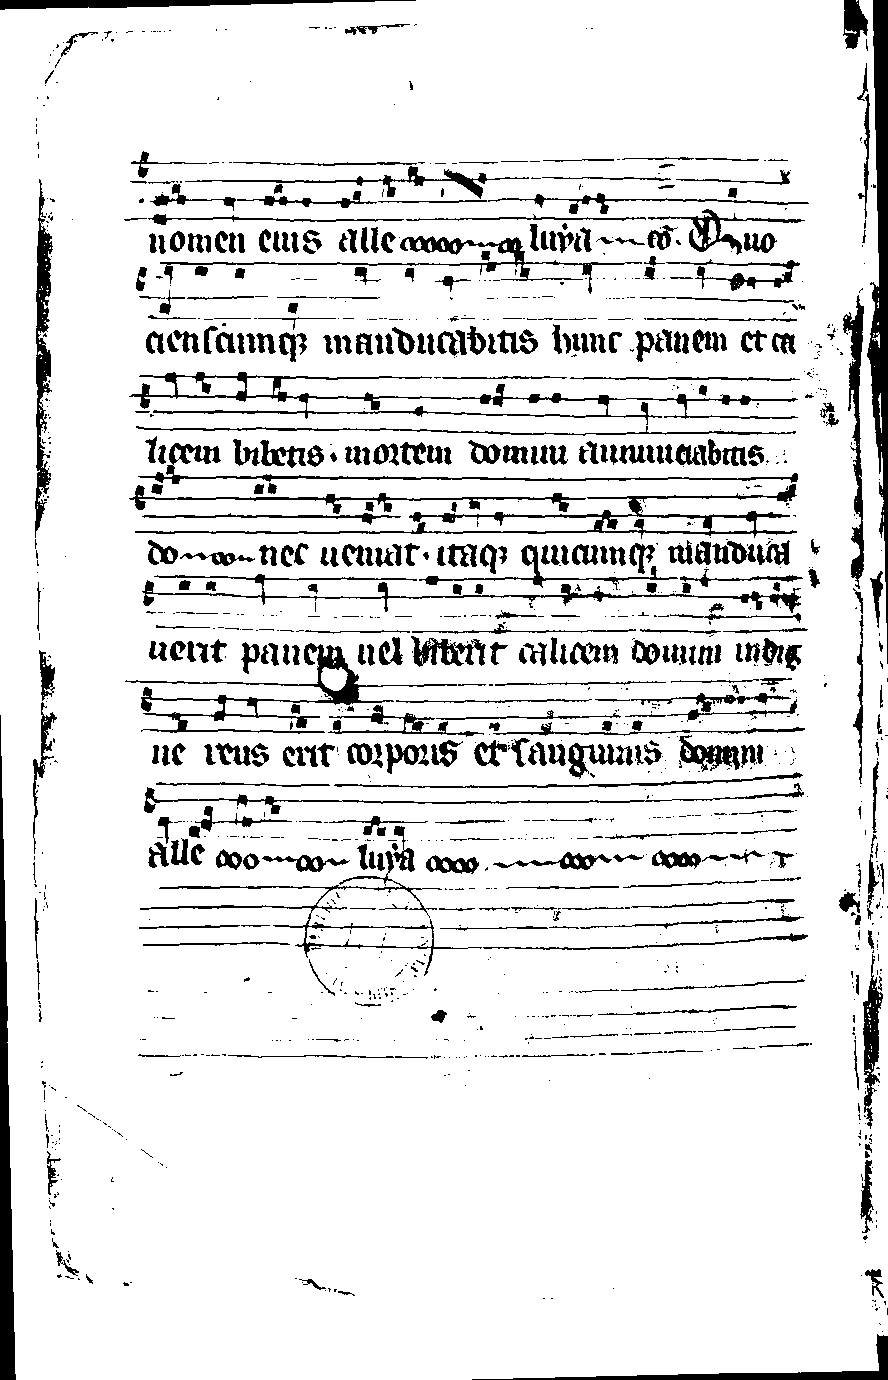 nomen eius alle luya co. Quo
ciensciunqꝫ manducabitis hunc panem et ca
licem bibetis. mortem domini annunciabitis
do nec ueniat. itaqꝫ quicunqꝫ manduca
uerit panem uel biberit calicem domini indig
ne reus erit corporis et sanguinis domini
alle luya